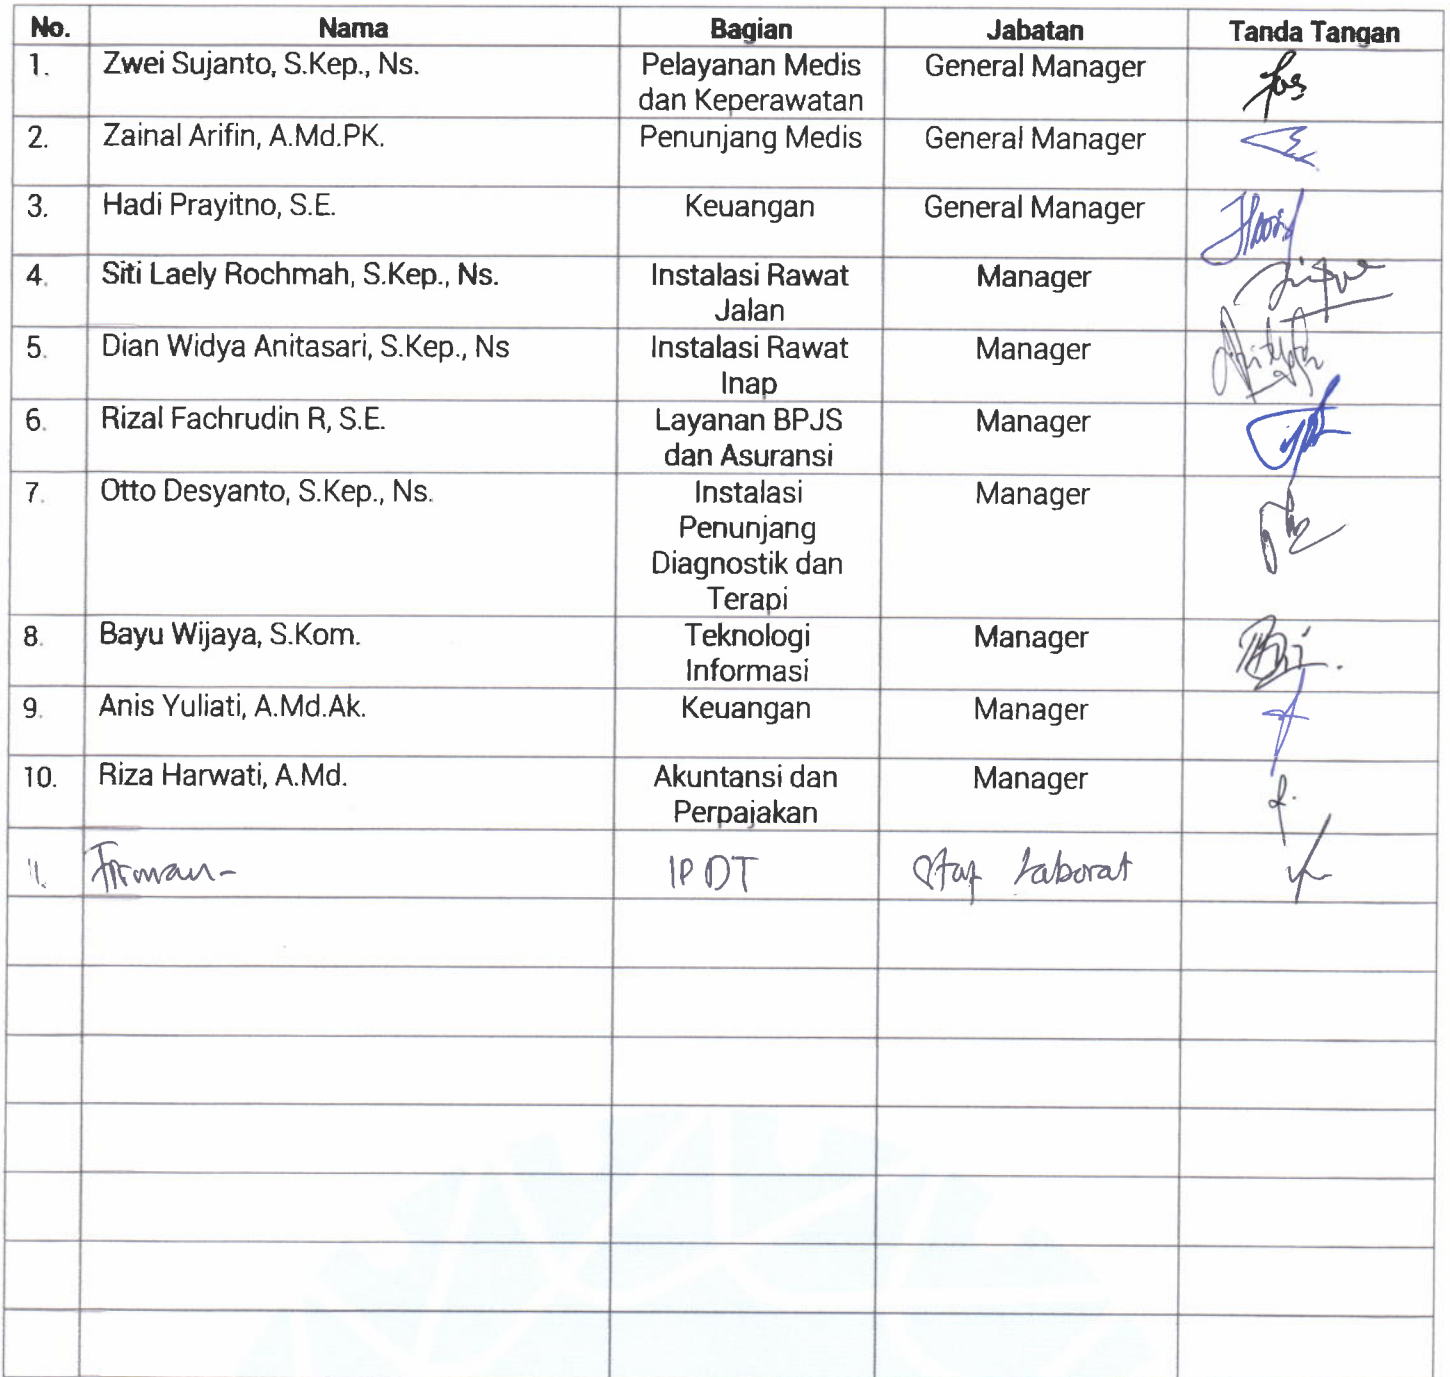 No. Nama Bagian Jabatan Tanda Tangan
1. Zwei Sujanto, S.Kep., Ns. Pelayanan Medis General Manager
dan Keperawatan
2. Zainal Arifin, A.Md.PK. Penunjang Medis General Manager
3. Hadi Prayitno, S.E. Keuangan General Manager
4. Siti Laely Rochmah, S.Kep., Ns. Instalasi Rawat Manager
Jalan
5. Dian Widya Anitasari, S.Kep., Ns Instalasi Rawat Manager
Inap
6. Rizal Fachrudin R, S.E. Layanan BPJS Manager
dan Asuransi
7. Otto Desyanto, S.Kep., Ns. Instalasi Manager
Penunjang
Diagnostik dan
Terapi
8. Bayu Wijaya, S.Kom. Teknologi Manager
Informasi
9. Anis Yuliati, A.Md.Ak. Keuangan Manager
10. Riza Harwati, A.Md. Akuntansi dan Manager
Perpajakan
11. Firman IPDT Staf Laborat